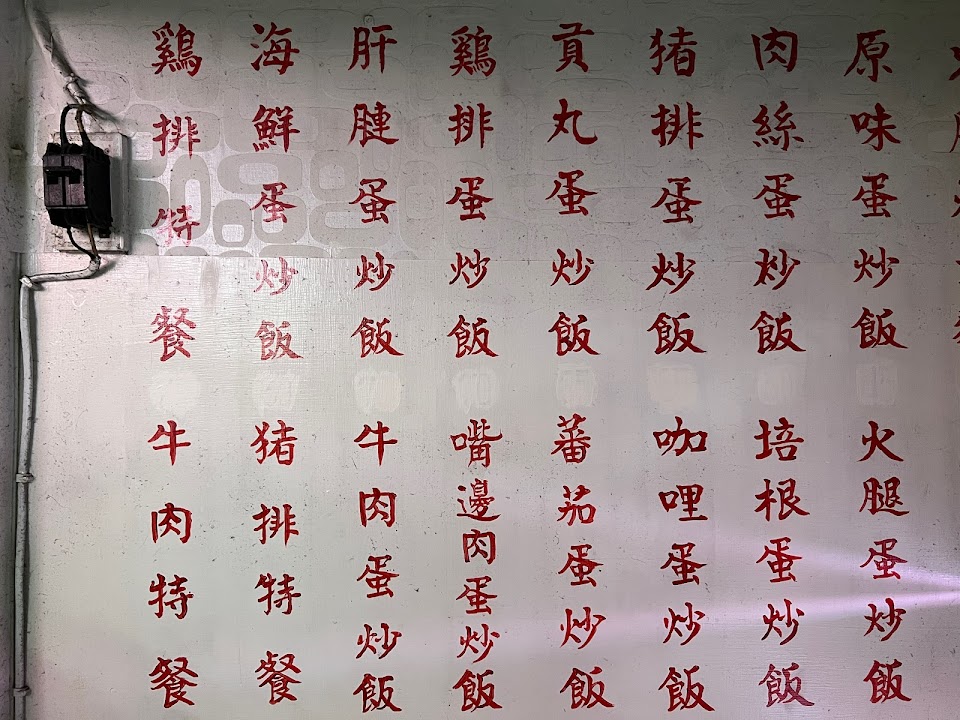 原味蛋炒飯
肉絲蛋炒飯
猪排蛋炒飯
貢丸蛋炒飯
鷄排蛋炒飯
肝腱蛋炒飯
海鮮蛋炒飯
鷄排特餐
火腿蛋炒飯
培根蛋炒飯
咖哩蛋炒飯
蕃茄蛋炒飯
嘴邊肉蛋炒飯
牛肉蛋炒飯
猪排特餐
牛肉特餐